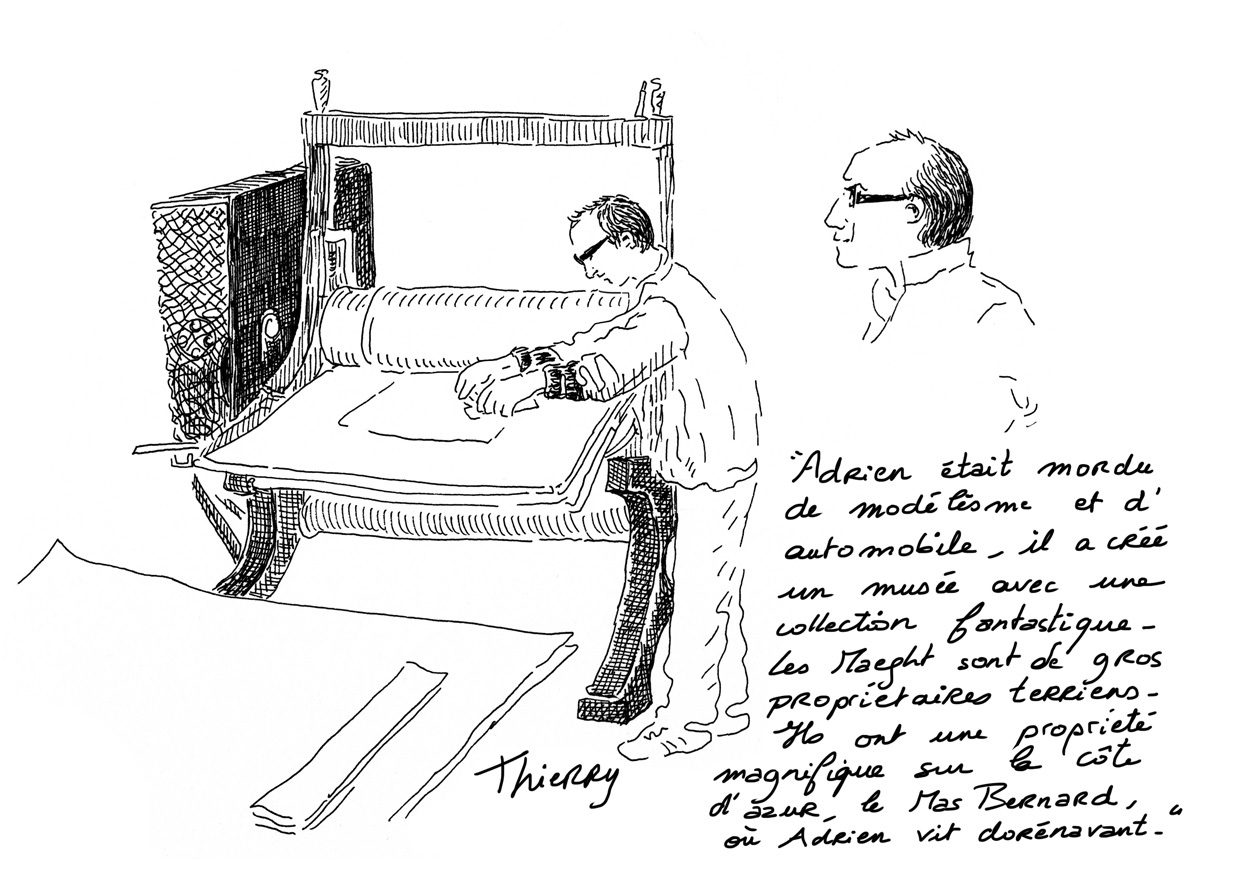 "Adrien était mordu
de modélisme et d'
automobile, il a créé
un musée avec une
collection fantastique.
Les Maeght sont de gros
propriétaires terriens.
Ils ont une propriété
magnifique sur la côte
d'azur, le Mas Bernard,
où Adrien vit dorénavant."
Thierry